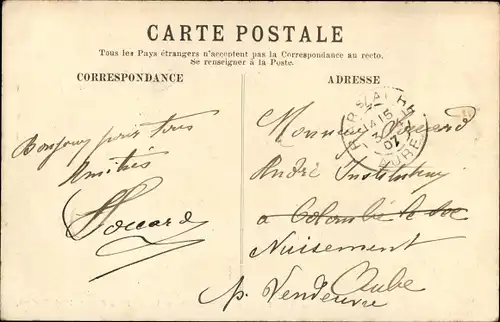 CARTE POSTALE
Tous les Pays étrangers n'acceptent pas la Correspondance au recto.
Se renseigner à la Poste.
CORRESPONDANCE
ADRESSE
Bonjour pour tous
Amitiés
Soccard
Monsieur Soccard
André Instituteur
a Colombé le Sec
Nuisement
p. Vendeuvre
Aube
BAR-S-AUBE
15
07
AUBE